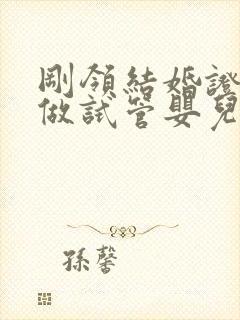 剛領結婚證
做試管嬰兒
孫馨